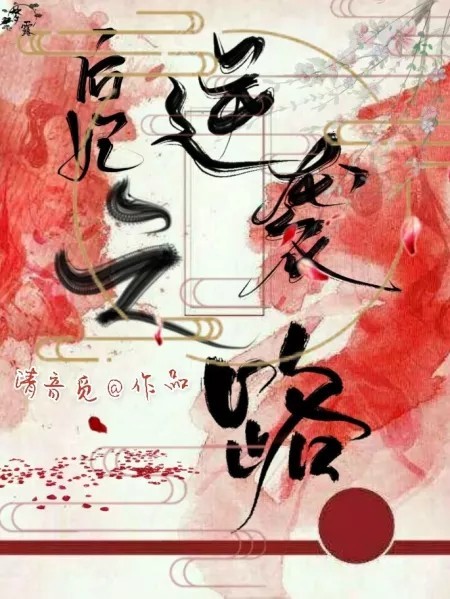 后妃之
逆袭路
清音觅@作品